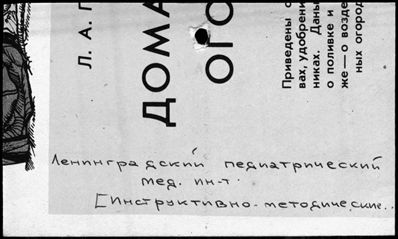 Л. А. П
ДОМА
ОГО
Приведены о
вах, удобрени
никах. Даны
о поливке и
же — о возде
ных огород
Ленинградский педиатрический
мед. ин-т.
[Инструктивно-методические..